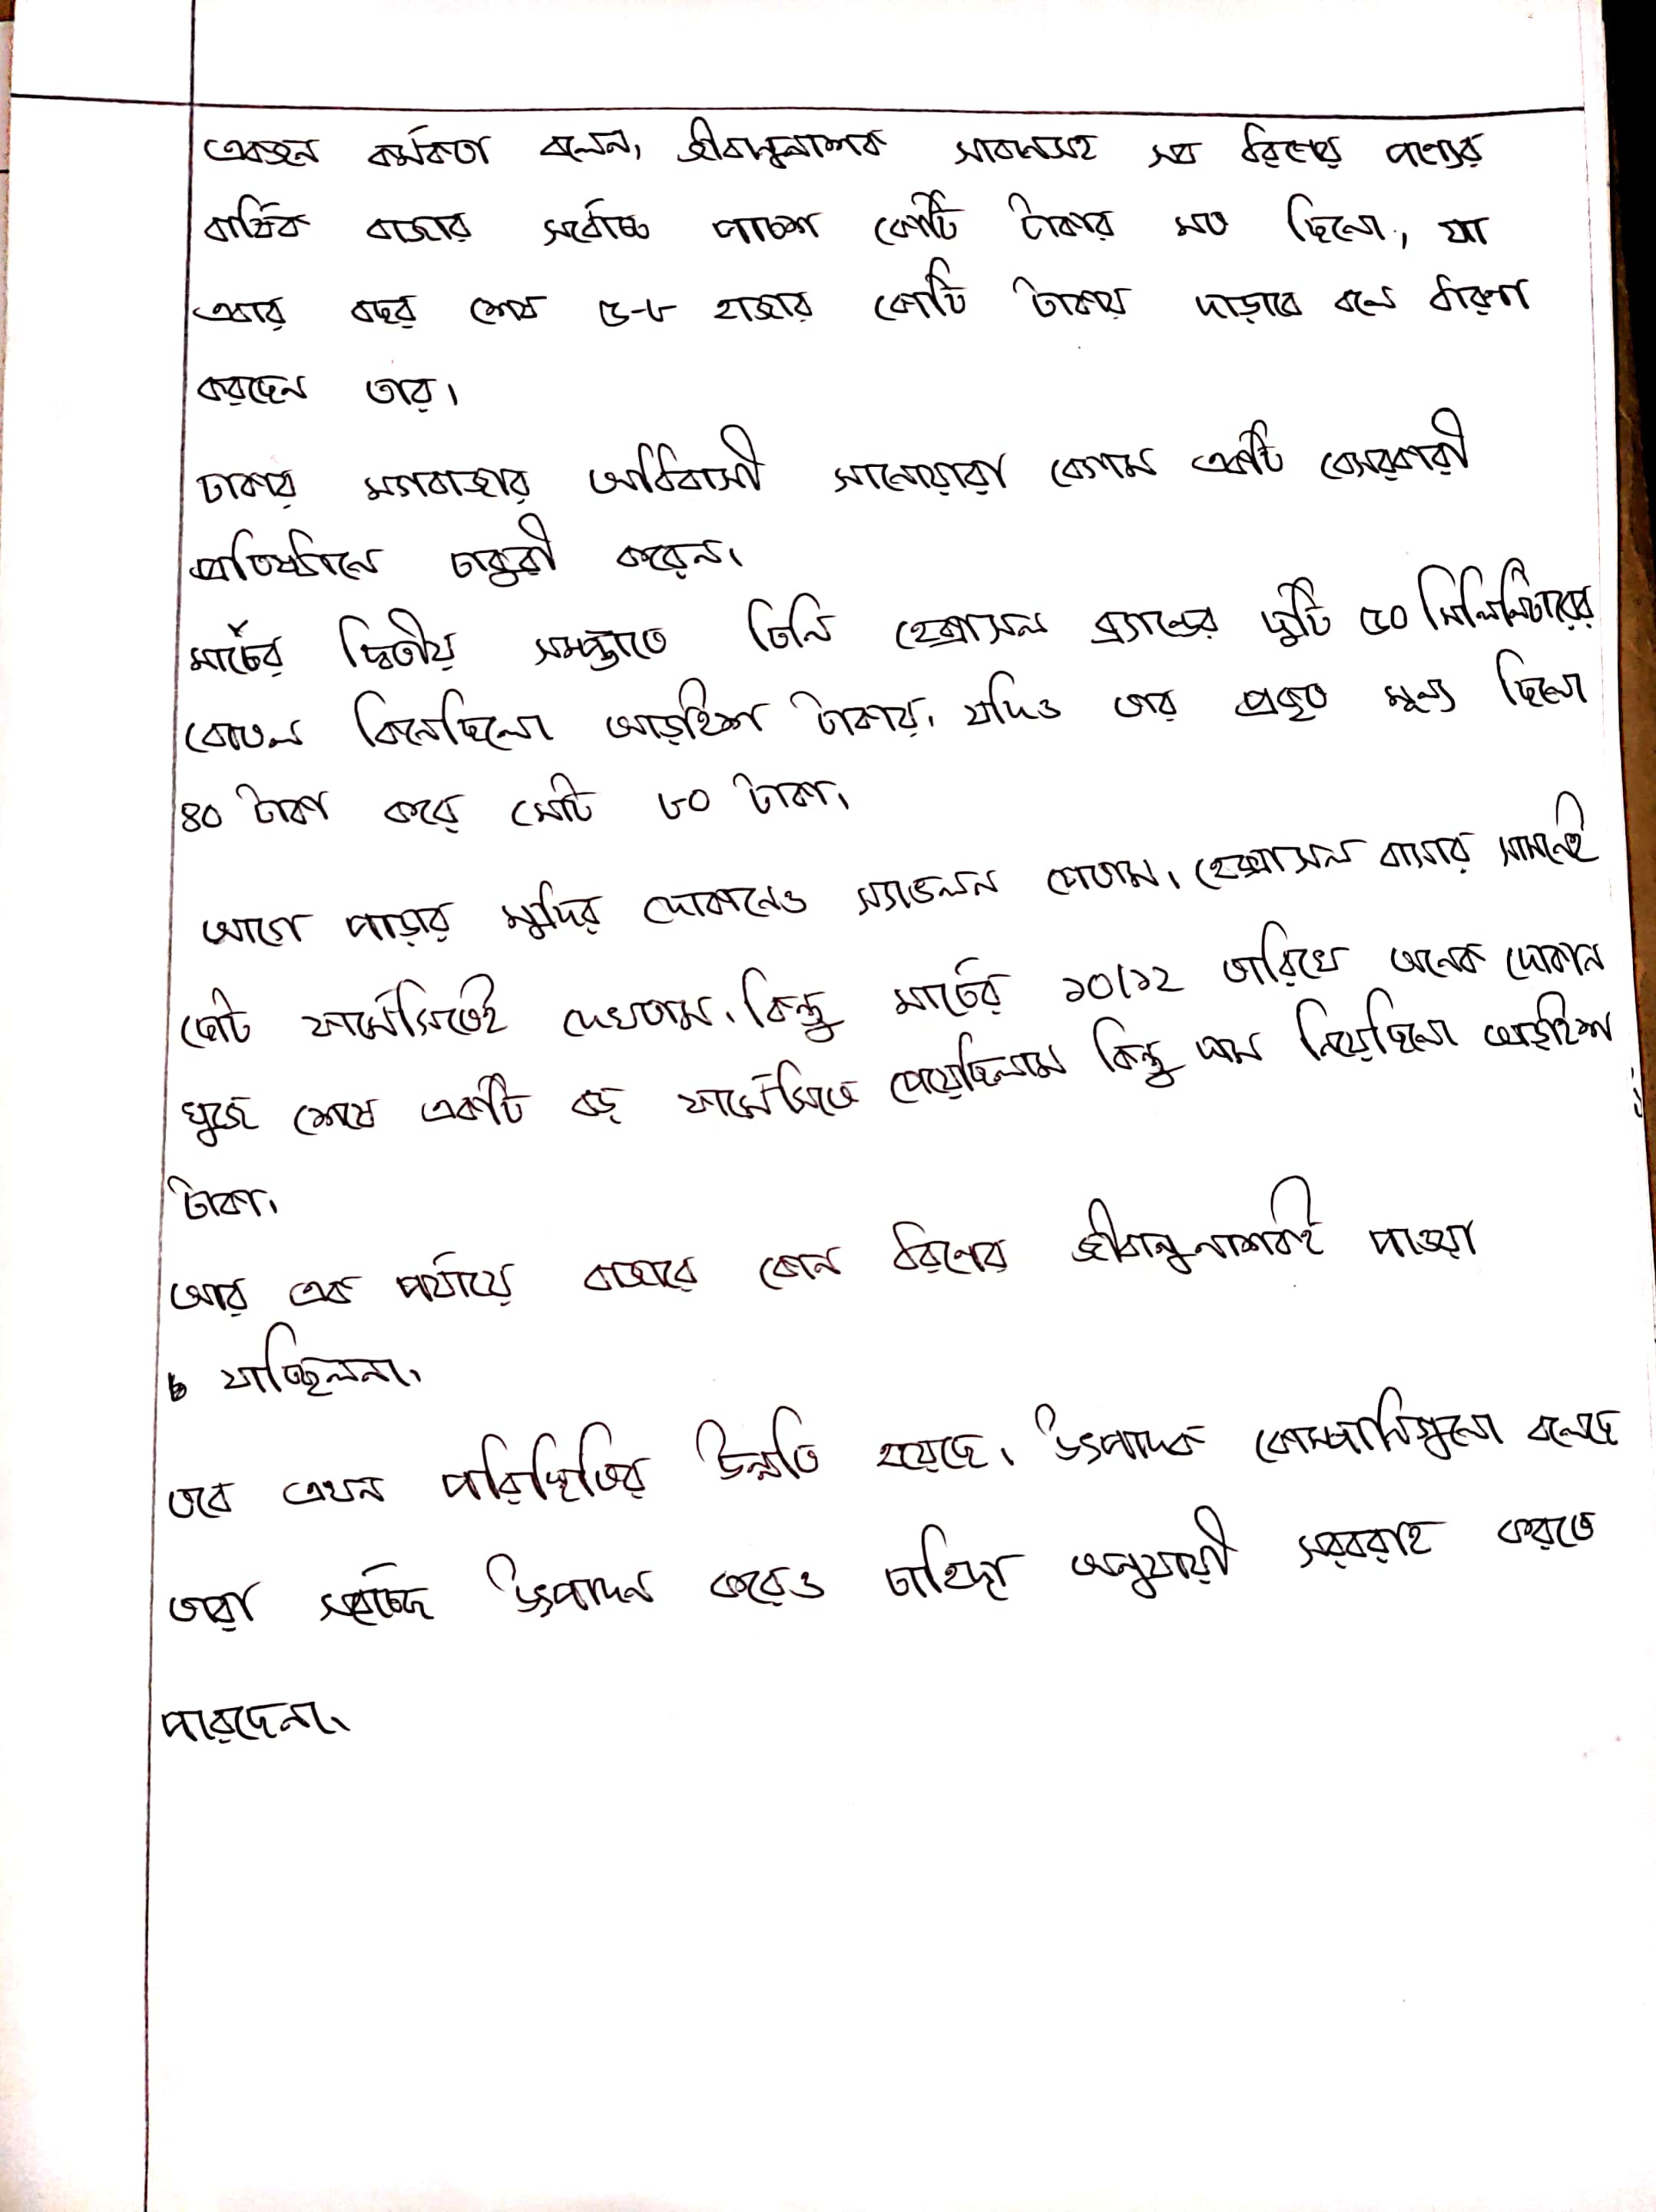 একজন কর্মকতা বলেন, জীবানুনাশক সাবানসহ সব ধরিণের পণ্যের
বার্ষিক বাজার সর্বোচ্চ পাচশ কোটি টাকার মত ছিলো, যা
এবার বছর শেষ ৫-৮ হাজার কোটি টাকায় দাড়াবে বলে ধারণা
করছেন তার।
ঢাকার মগবাজার অধিবাসী সানোয়ারা বেগম একটি বেসরকারী
প্রতিষ্ঠানে চাকুরী করেন।
মার্চের দ্বিতীয় সমপ্তাতে তিনি হেক্সাসল ব্র্যান্ডের দুটি ৫০ মিলিলিটারের
বোতল কিনেছিলো আড়াইশ টাকায়, যদিও তার প্রকৃত মূল্য ছিলো
৪০ টাকা করে মোট ৮০ টাকা।
আগে পাড়ার মুদির দোকানেও স্যাভলন পেতাম। হেক্সাসল বাসার সামনেই
ছোট ফার্মেসিতেই দেখতাম। কিন্তু মার্চের ১০/১২ তারিখে অনেক দোকান
খুজে শেষে একটি বড় ফার্মেসিতে পেয়েছিলাম কিন্তু দাম নিয়েছিলো আড়াইশ
টাকা।
আর এক পর্যায়ে বাজারে কোন ধরিণের জীবানুনাশকই পাওয়া
যাচ্ছিলনা।
তবে এখন পরিস্থিতির উন্নতি হয়েছে। উৎপাদক কোম্পানিগুলো বলেছে
তারা উৎপাদন করেও চাহিদা অনুযায়ী সরবরাহ করতে
পারছেনা।